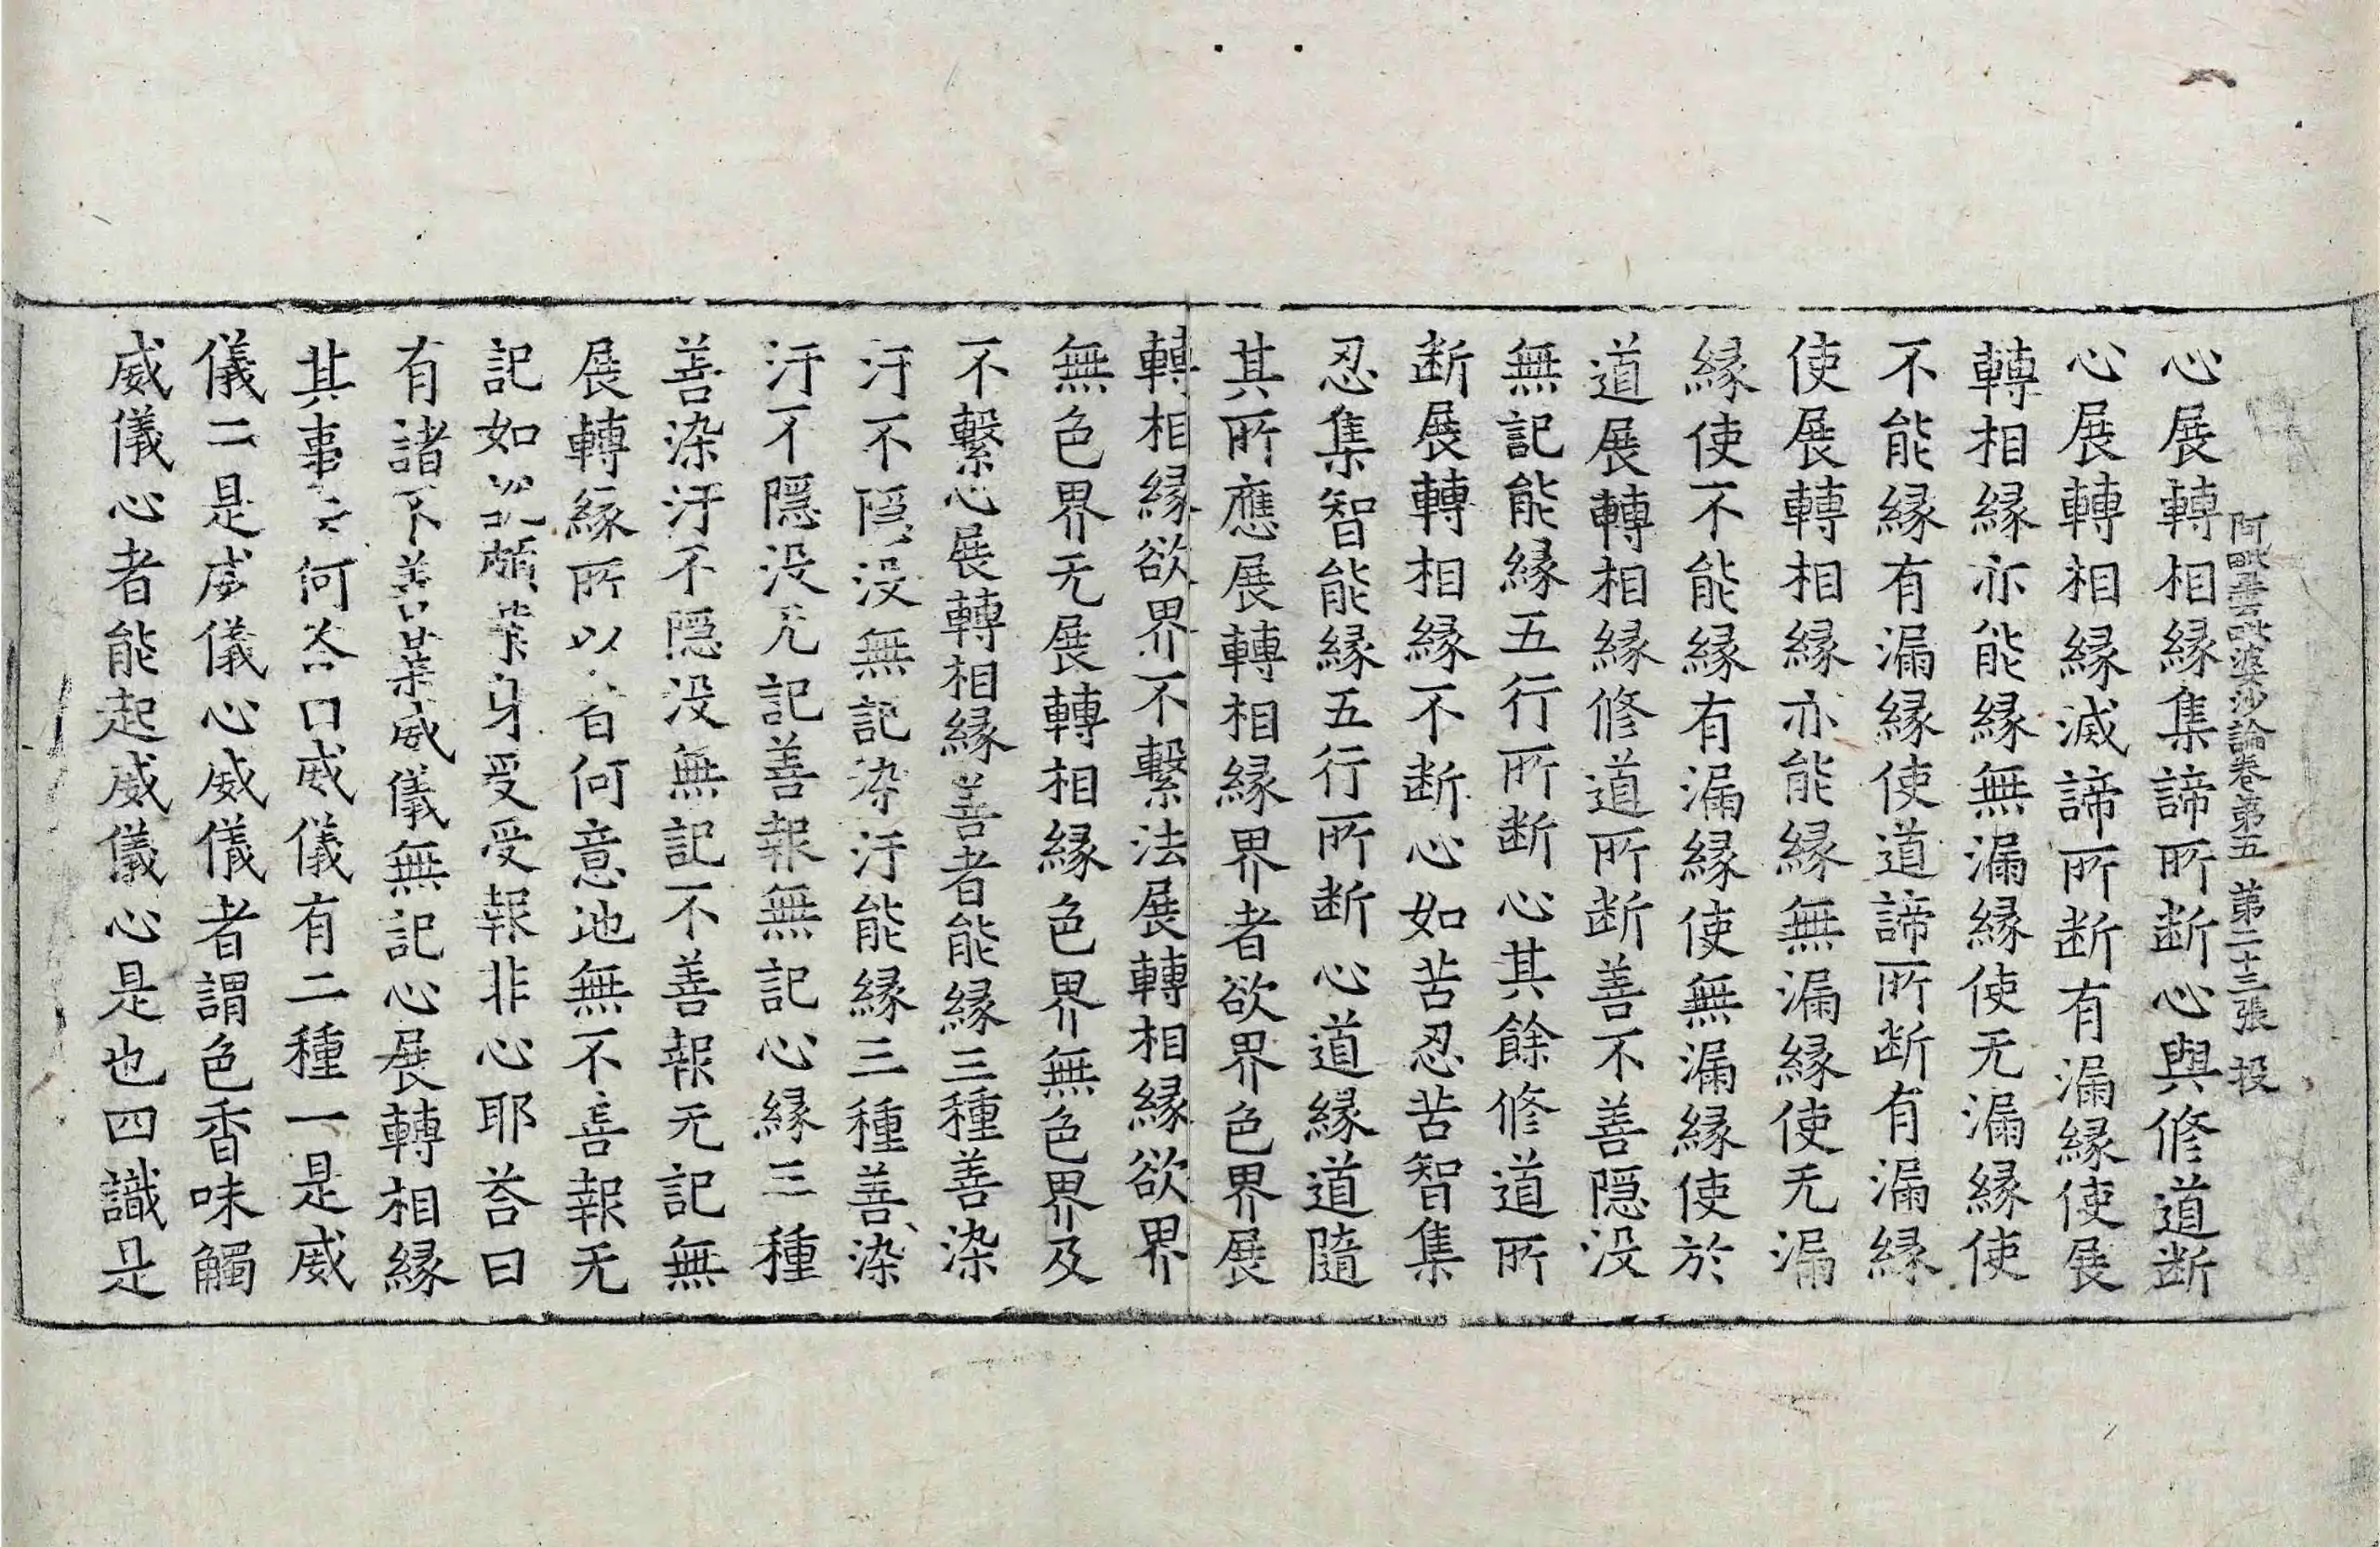 阿毗曇毗婆沙論卷第五　第二十三張　投
心展轉相縁集諦所断心與修道断
心展轉相縁滅諦所断有漏縁使展
轉相縁亦能縁無漏縁使无漏縁使
不能縁有漏縁使道諦所断有漏縁
使展轉相縁亦能縁無漏縁使无漏
縁使不能縁有漏縁使無漏縁使於
道展轉相縁修道所断善不善隠没
無記能縁五行所断心其餘修道所
断展轉相縁不断心如苦忍苦智集
忍集智能縁五行所断心道縁道隨
其所應展轉相縁界者欲界色界展
轉相縁欲界不繫法展轉相縁欲界
無色界无展轉相縁色界無色界及
不繫心展轉相縁善者能縁三種善染
汙不隠没無記染汙能縁三種善染
汙不隠没无記善報無記心縁三種
善染汙不隠没無記不善報无記無
展轉縁所以者何意地無不善報无
記如說頗業身受受報非心耶荅曰
有諸不善業威儀無記心展轉相縁
其事云何荅曰威儀有二種一是威
儀二是威儀心威儀者謂色香味觸
威儀心者能起威儀心是也四識是